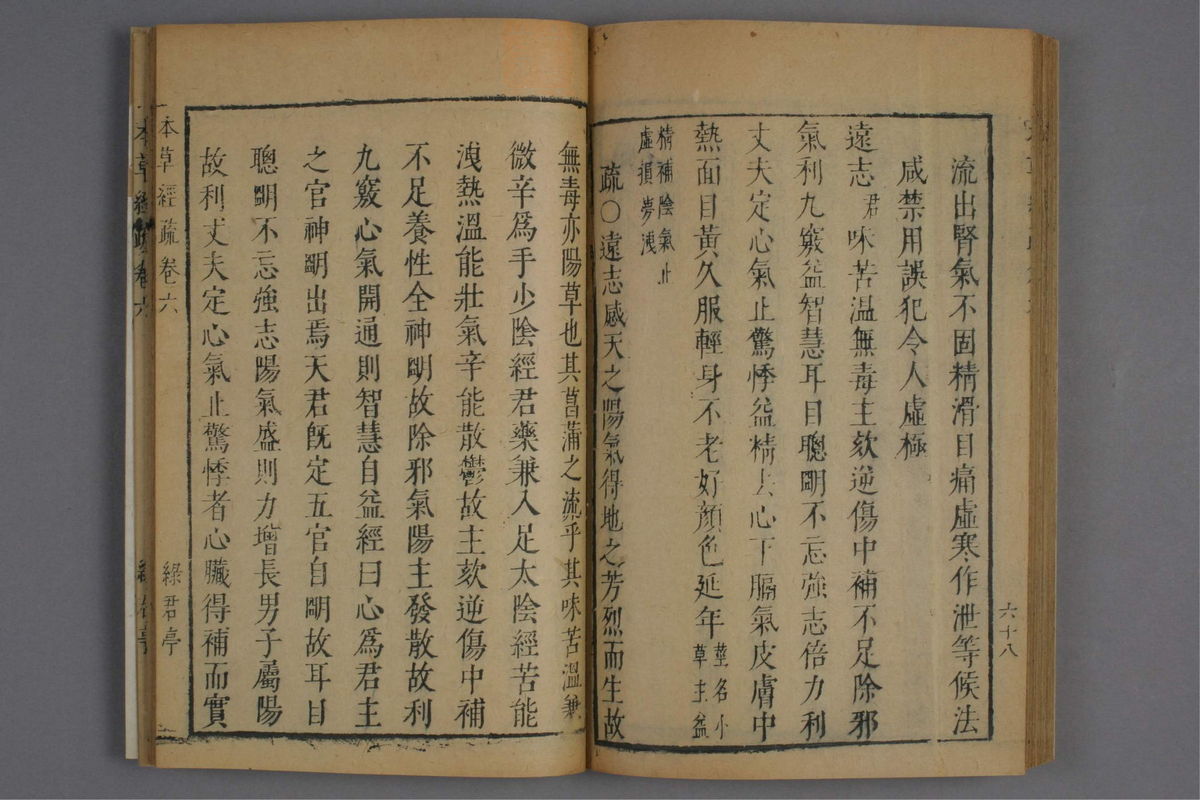 流出腎氣不固精滑目痛虛寒作泄等候法
咸禁用誤犯令人虛極
遠志君味苦温無毒主欬逆傷中補不足除邪
氣利九竅益智慧耳目聰朙不忘強志倍力利
丈夫定心氣止驚悸益精去心下膈氣皮膚中
熱面目黃久服輕身不老好顏色延年莖名小
草主益
精補陰氣止
虛損夢洩
疏○遠志感天之陽氣得地之芳烈而生故
六十八
無毒亦陽草也其菖蒲之流乎其味苦溫兼
微辛爲手少陰經君藥兼入足太陰經苦能
洩熱溫能壯氣辛能散鬱故主欬逆傷中補
不足養性全神朙故除邪氣陽主發散故利
九竅心氣開通則智慧自益經曰心爲君主
之官神朙出焉天君旣定五官自朙故耳目
聰朙不忘強志陽氣盛則力增長男子屬陽
故利丈夫定心氣止驚悸者心臟得補而實
本草經疏 卷六 綠君亭
本草經疏 卷六